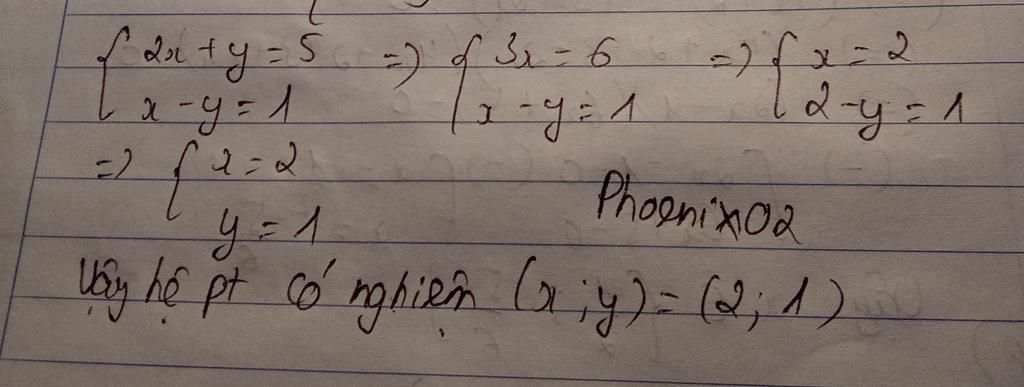 { 2x + y = 5 => { 3x = 6 => { x = 2
x - y = 1 x - y = 1 2 - y = 1
=> { x = 2
y = 1
Phoenix02
Vậy hệ pt có nghiệm (x ; y) = (2; 1)